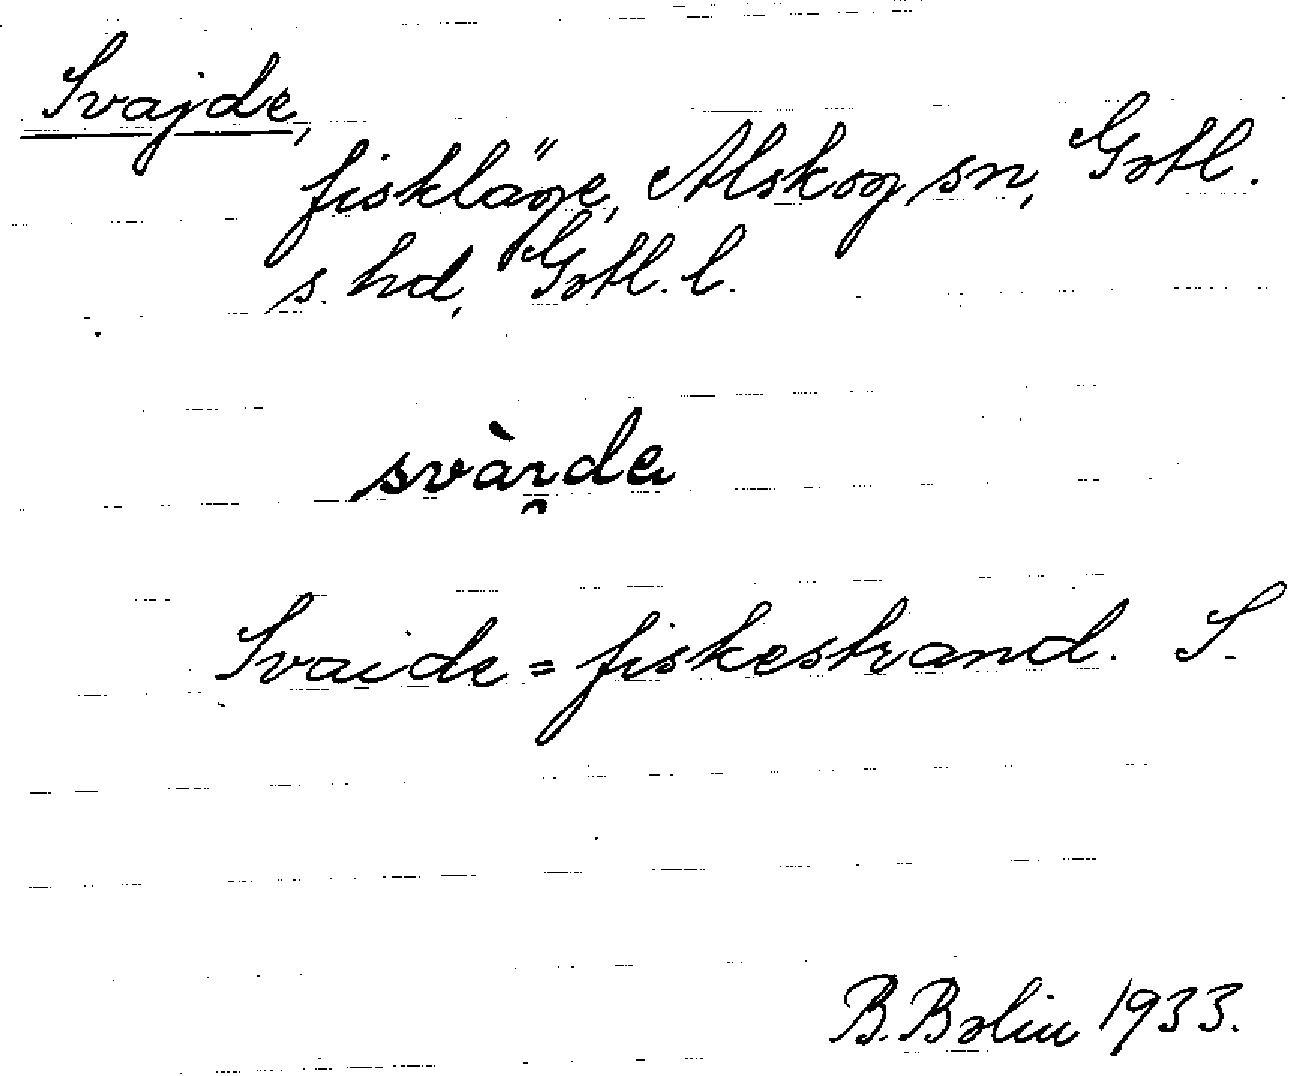 Svajde,
fiskläge, Alskog sn, Gotl.
s. hd, Gotl. l.
svàɪ̯de
Svaide = fiskestrand. S.
B. Bolin 1933.